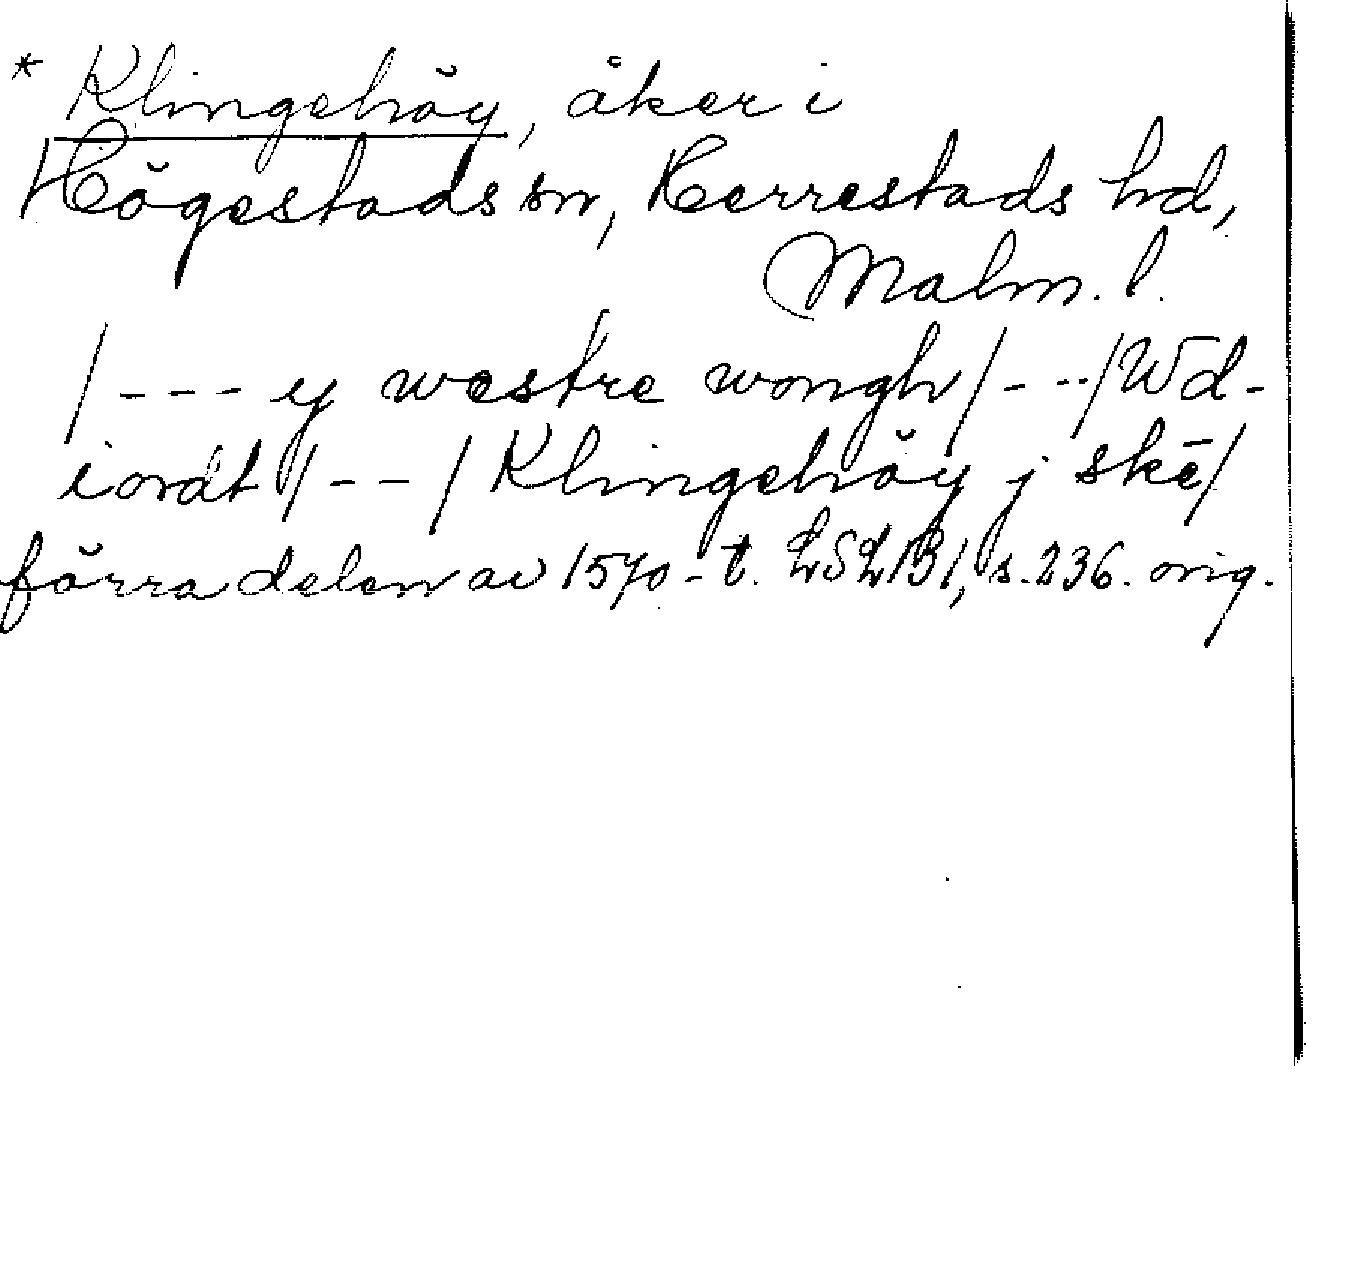 * Klingehöy, åker i
Högestads sn, Herrestads hd,
Malm. l.
/--- y westre wongh/---/Wd-
iordt/--/Klingehöy j skē/
förra delen av 1570-t. LSLB1, s. 236. orig.